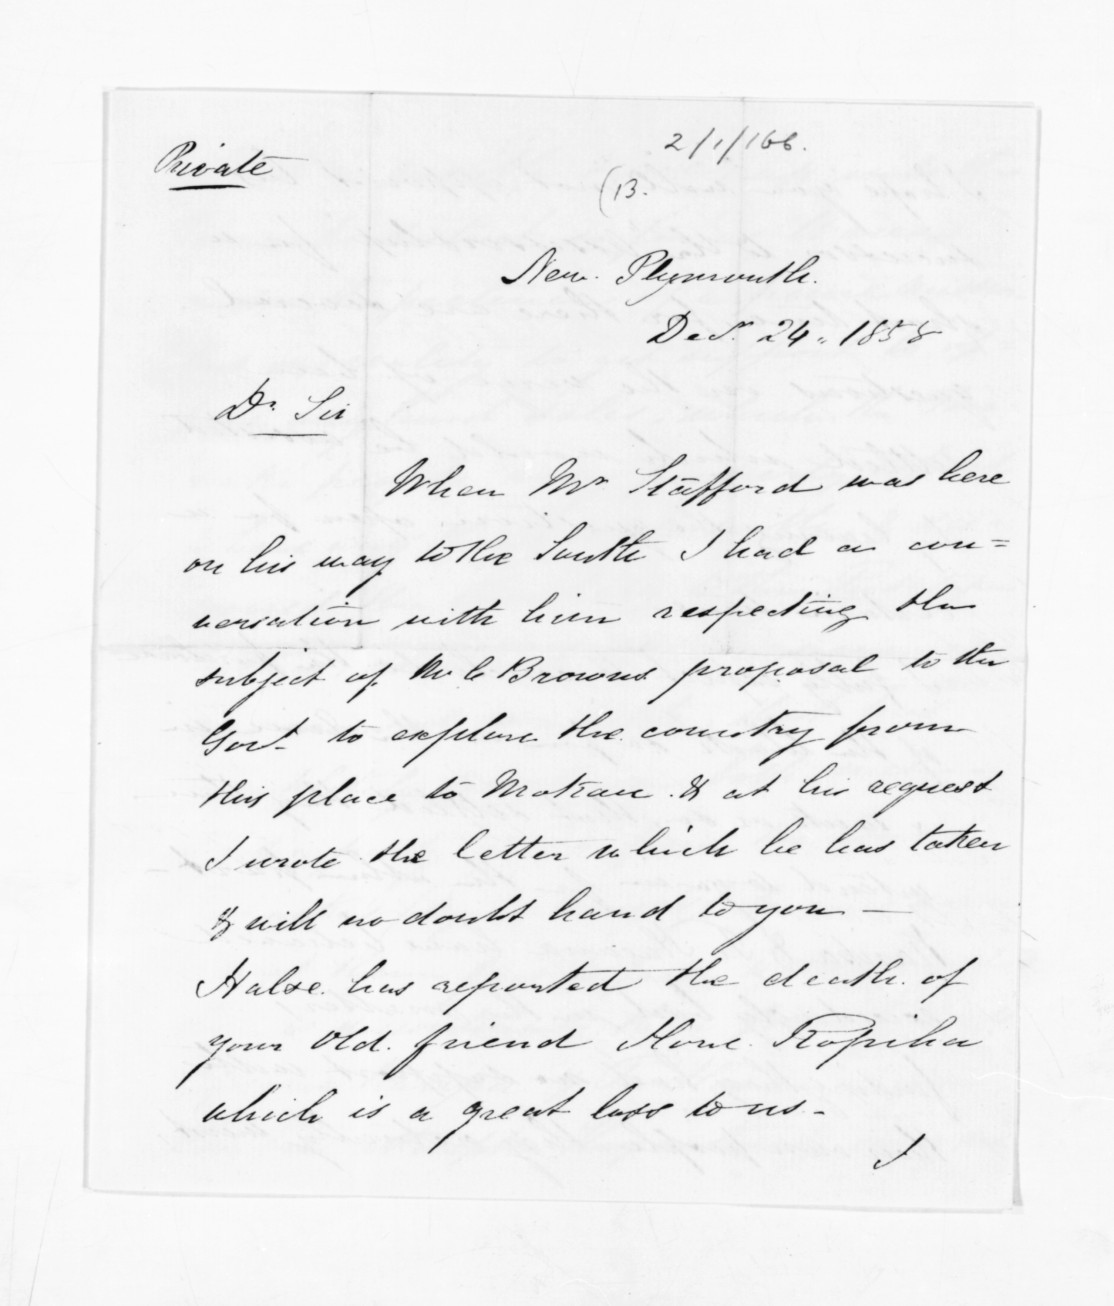 Private
2/1/166.
(13.
New Plymouth.
Decr. 24. 1858
Dr. Sir
When Mr Stafford was here
on his way to the South I had a con=
versation with him respecting the
subject of Mr C Browns proposal to the
Govt to explore the country from
this place to Mokau & at his request
I wrote the letter which he has taken
& will no doubt hand to you —
Halse has reported the death of
your old friend Hone Ropiha
which is a great loss to us -
I